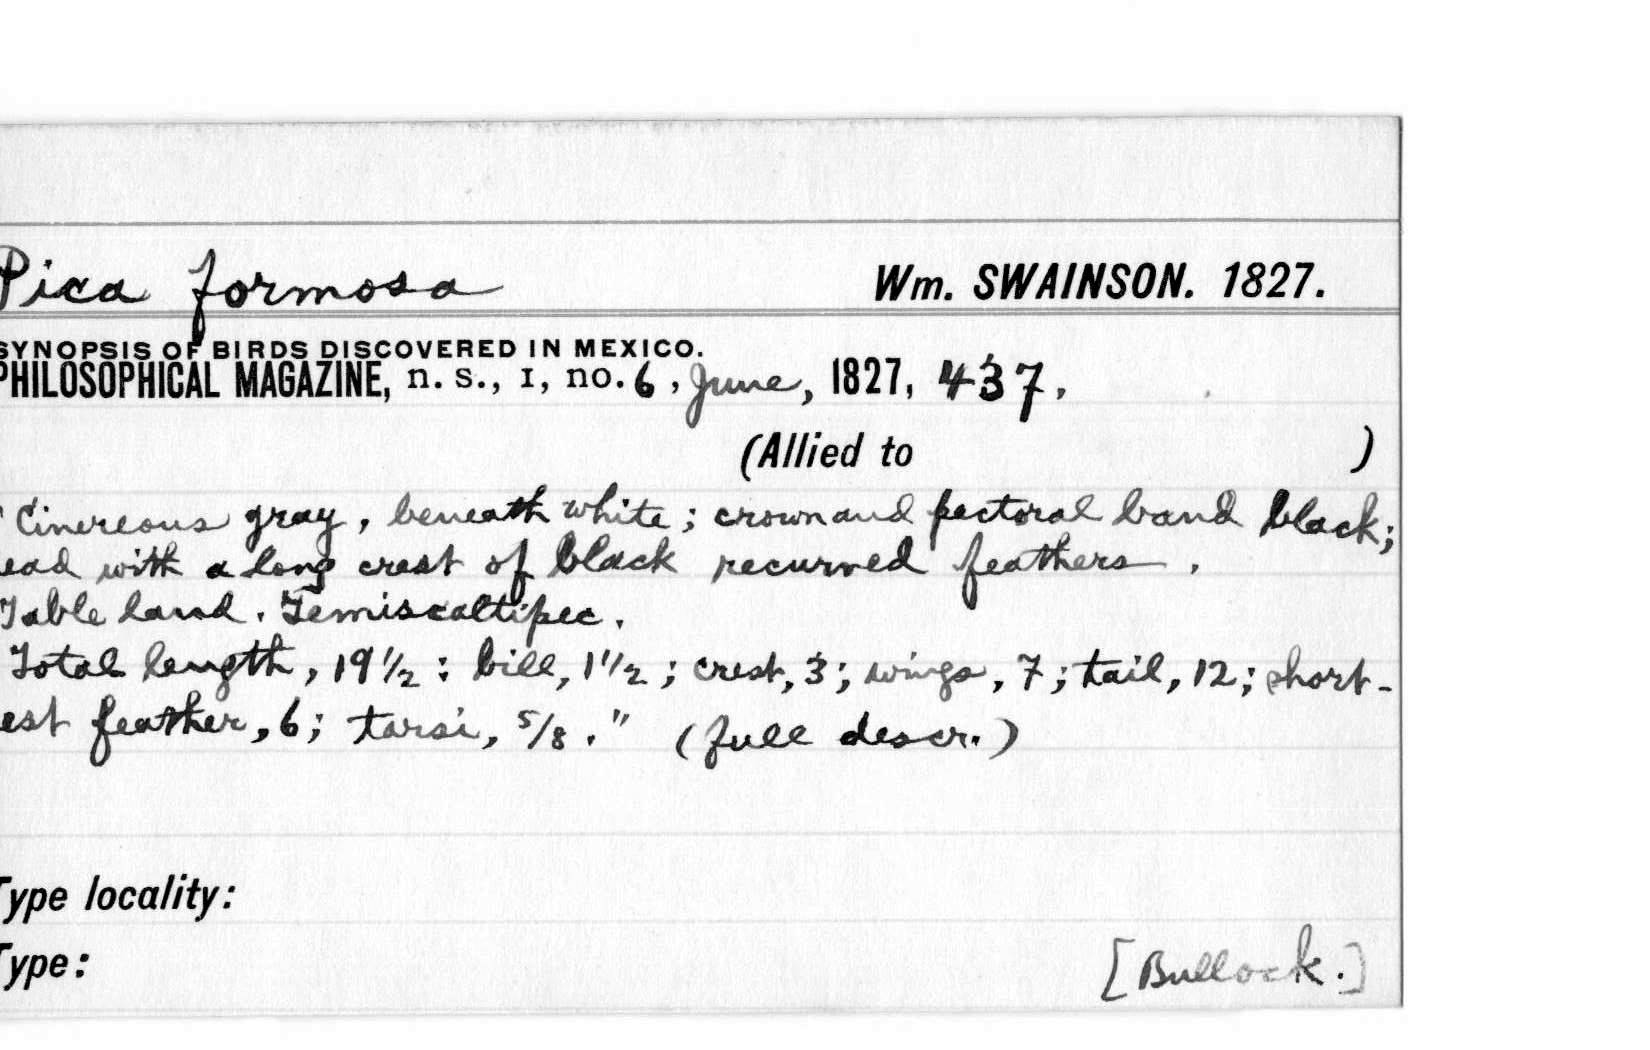 Pica formosa Wm. SWAINSON. 1827.
SYNOPSIS OF BIRDS DISCOVERED IN MEXICO.
PHILOSOPHICAL MAGAZINE, n. s., I, no. 6, June, 1827, 437.
(Allied to )
"Cinereous gray, beneath white; crown and pectoral band black;
ead with a long crest of black recurved feathers.
Table land. Temiscaltipec.
Total length, 19 1/2; bill, 1 1/2; crest, 3; wings, 7; tail, 12; short-
est feather, 6; tarsi, 5/8." (full descr.)
Type locality:
Type: [Bullock.]